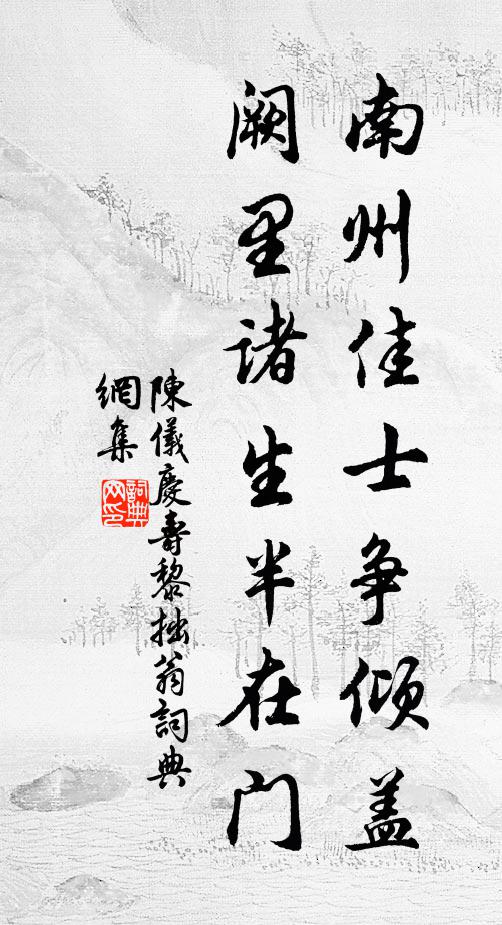 南州佳士争倾盖
阙里诸生半在门
陳儀慶壽黎拙翁詞典
網集
詞典
网印